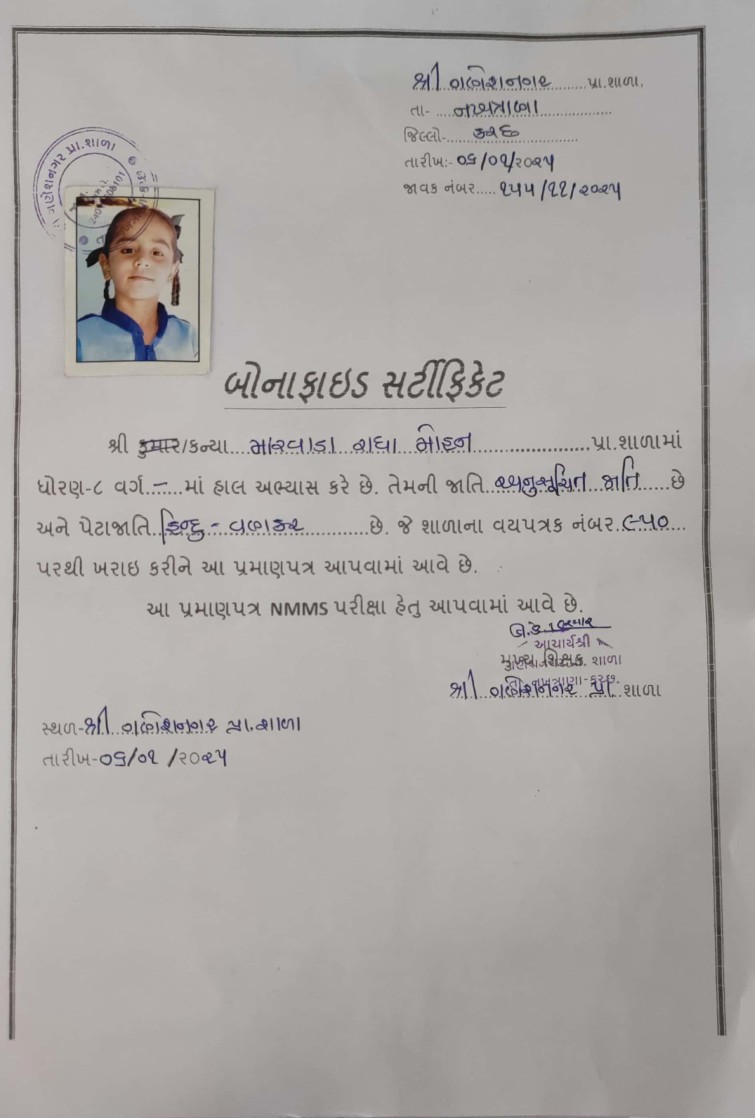 શ્રી ગણેશનગર પ્રા.શાળા.
તા- નખત્રાણા
જિલ્લો- કચ્છ
તારીખ:- ૦૬/૦૧/૨૦૨૫
જાવક નંબર..... ૧૫૫/૧૧/૨૦૨૫
ગણેશનગર પ્રા.શાળા
બોનાફાઇડ સર્ટીફિકેટ
શ્રી કુમાર/કન્યા...મારવાડા રાધા મોહન.....................પ્રા.શાળામાં
ધોરણ-૮ વર્ગ..–.....માં હાલ અભ્યાસ કરે છે. તેમની જાતિ અનુસૂચિત જાતિ.....છે
અને પેટાજાતિ હિન્દુ - વણકર............છે. જે શાળાના વયપત્રક નંબર..૯૫૦....
પરથી ખરાઇ કરીને આ પ્રમાણપત્ર આપવામાં આવે છે.
આ પ્રમાણપત્ર NMMS પરીક્ષા હેતુ આપવામાં આવે છે.
આચાર્યશ્રી
મુખ્ય શિક્ષક
શ્રી ગણેશનગર પ્રા. શાળા
સ્થળ-શ્રી ગણેશનગર પ્રા.શાળા
તારીખ-૦૬/૦૧ /૨૦૨૫